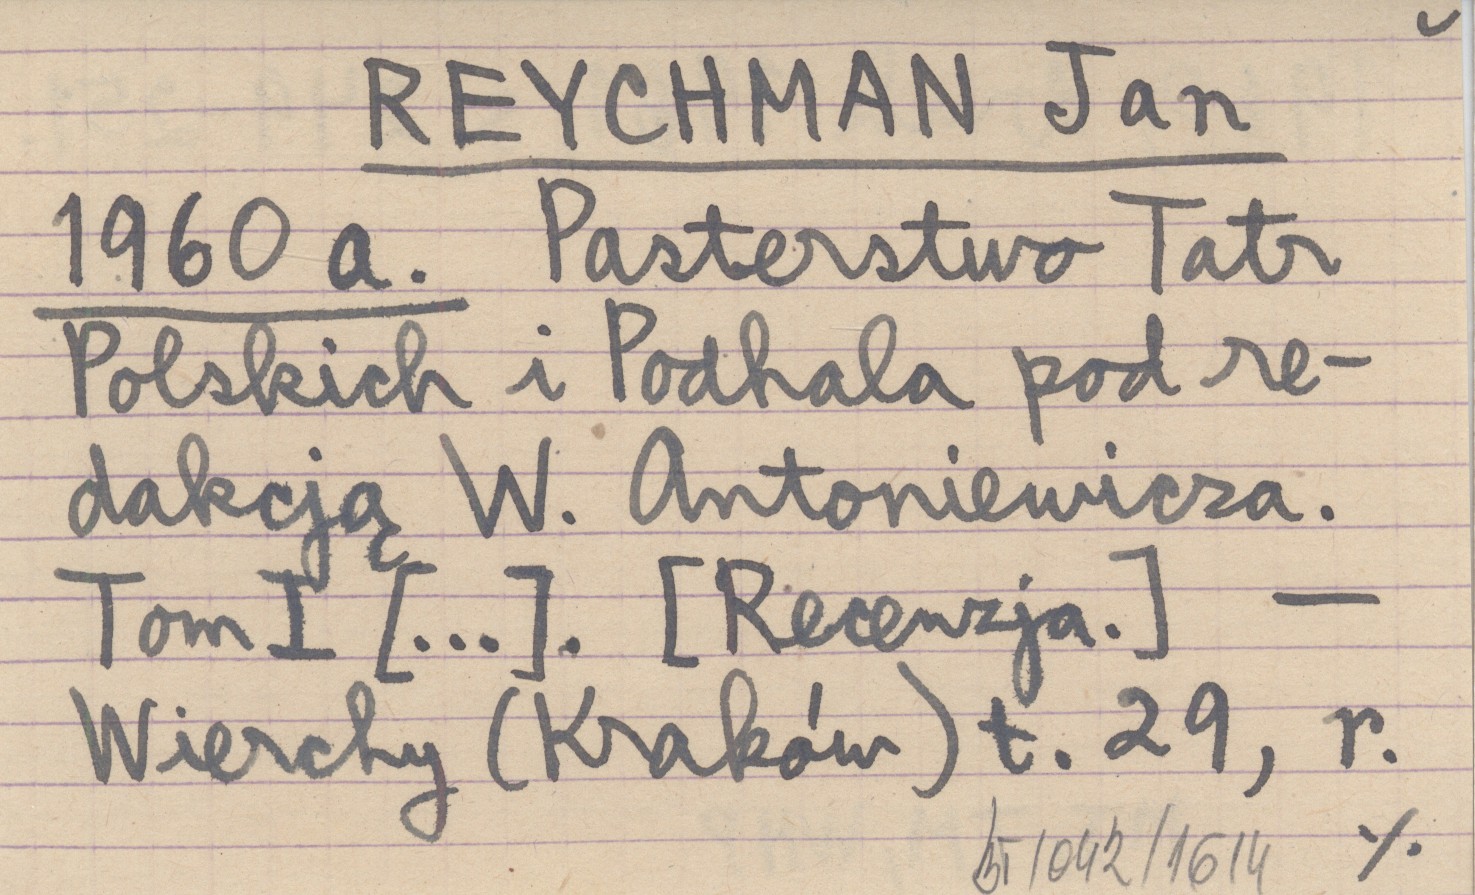 REYCHMAN Jan
1960 a. Pasterstwo Tatr
Polskich i Podhala pod re-
dakcją W. Antoniewicza.
Tom I [...]. [Recenzja.] —
Wierchy (Kraków) t. 29, r.
/1042/1614 ·/.